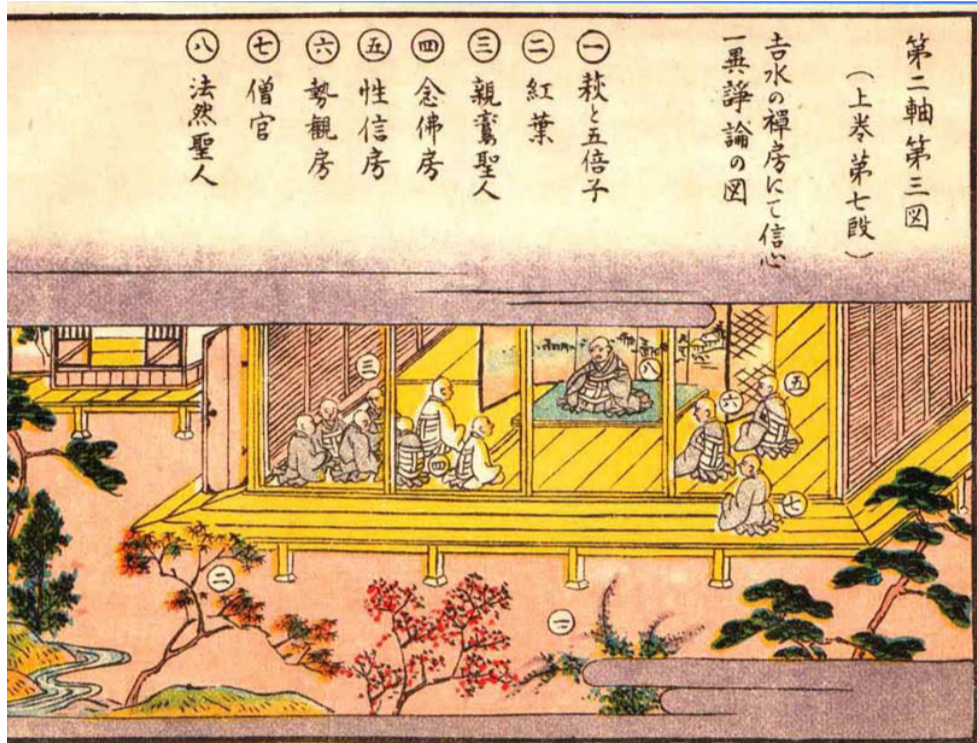 第二軸第三図
（上巻第七段）
吉水の禪房にて信心
一異諍論の図
一 萩と五倍子
二 紅葉
三 親鸞聖人
四 念佛房
五 性信房
六 勢観房
七 僧官
八 法然聖人
三
八
五
六
四
七
二
一